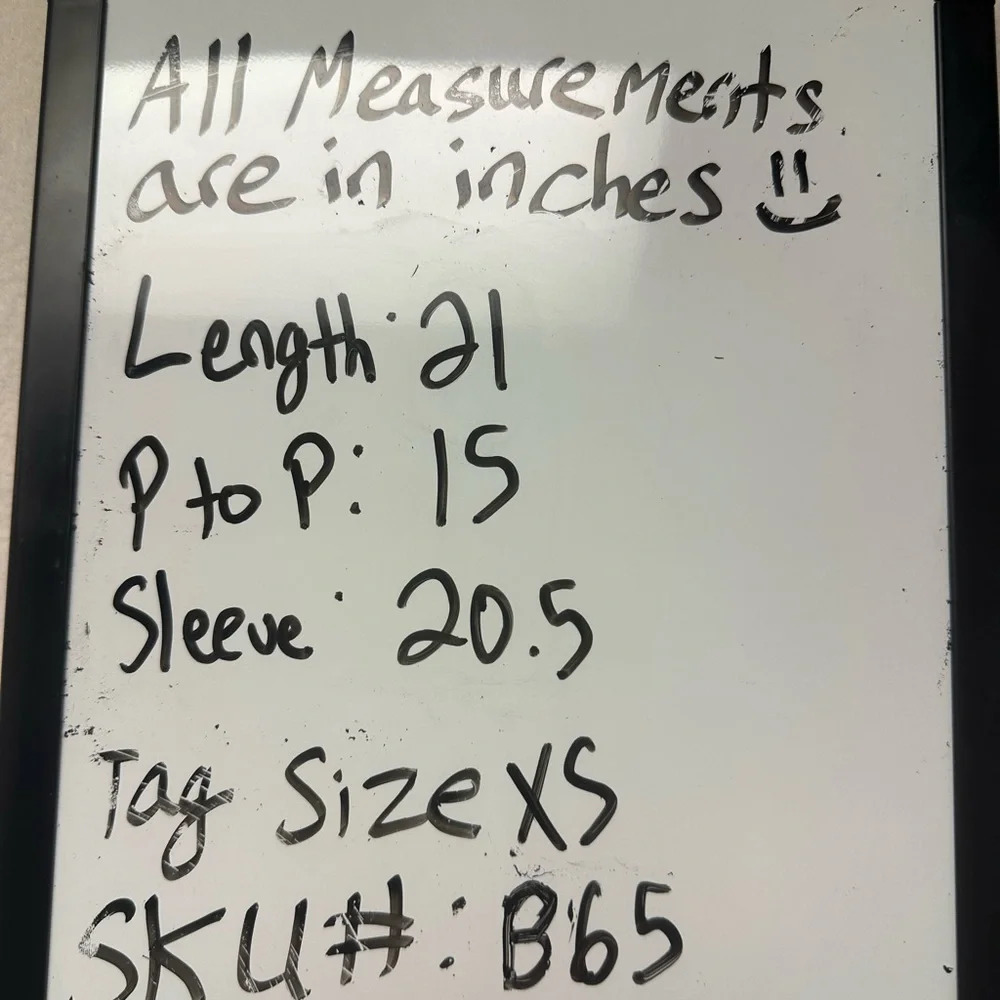 All Measurements
are in inches =)
Length: 21
P to P: 15
Sleeve: 20.5
Tag Size XS
SKU#: B65